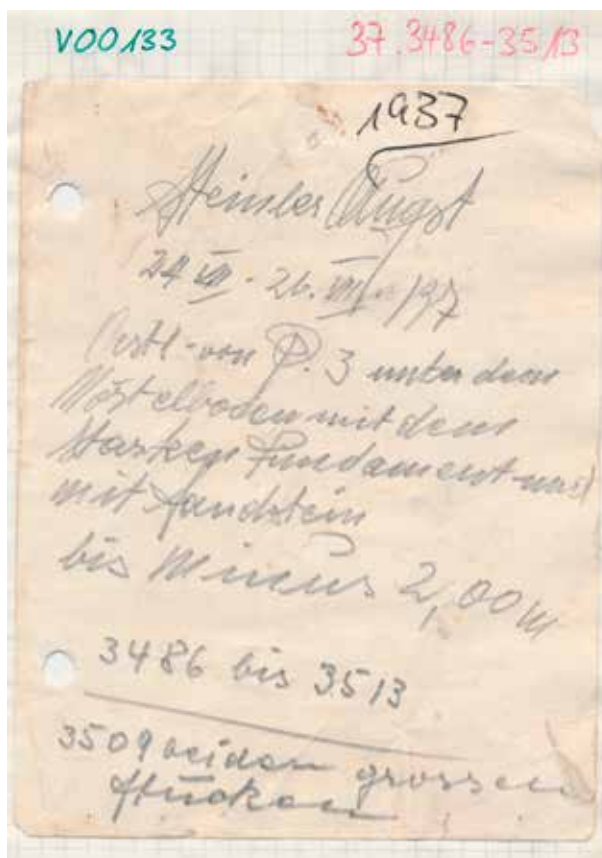 V00133
37.3486-3513
1937
Steinler Augst
24 VII - 26. VII. 1937
Östl. von P. 3 unter dem
Mörtelboden mit dem
starken Fundament und
mit Sandstein
bis Minus 2,00 m
3486 bis 3513
3509 bei den grossen
Stücken